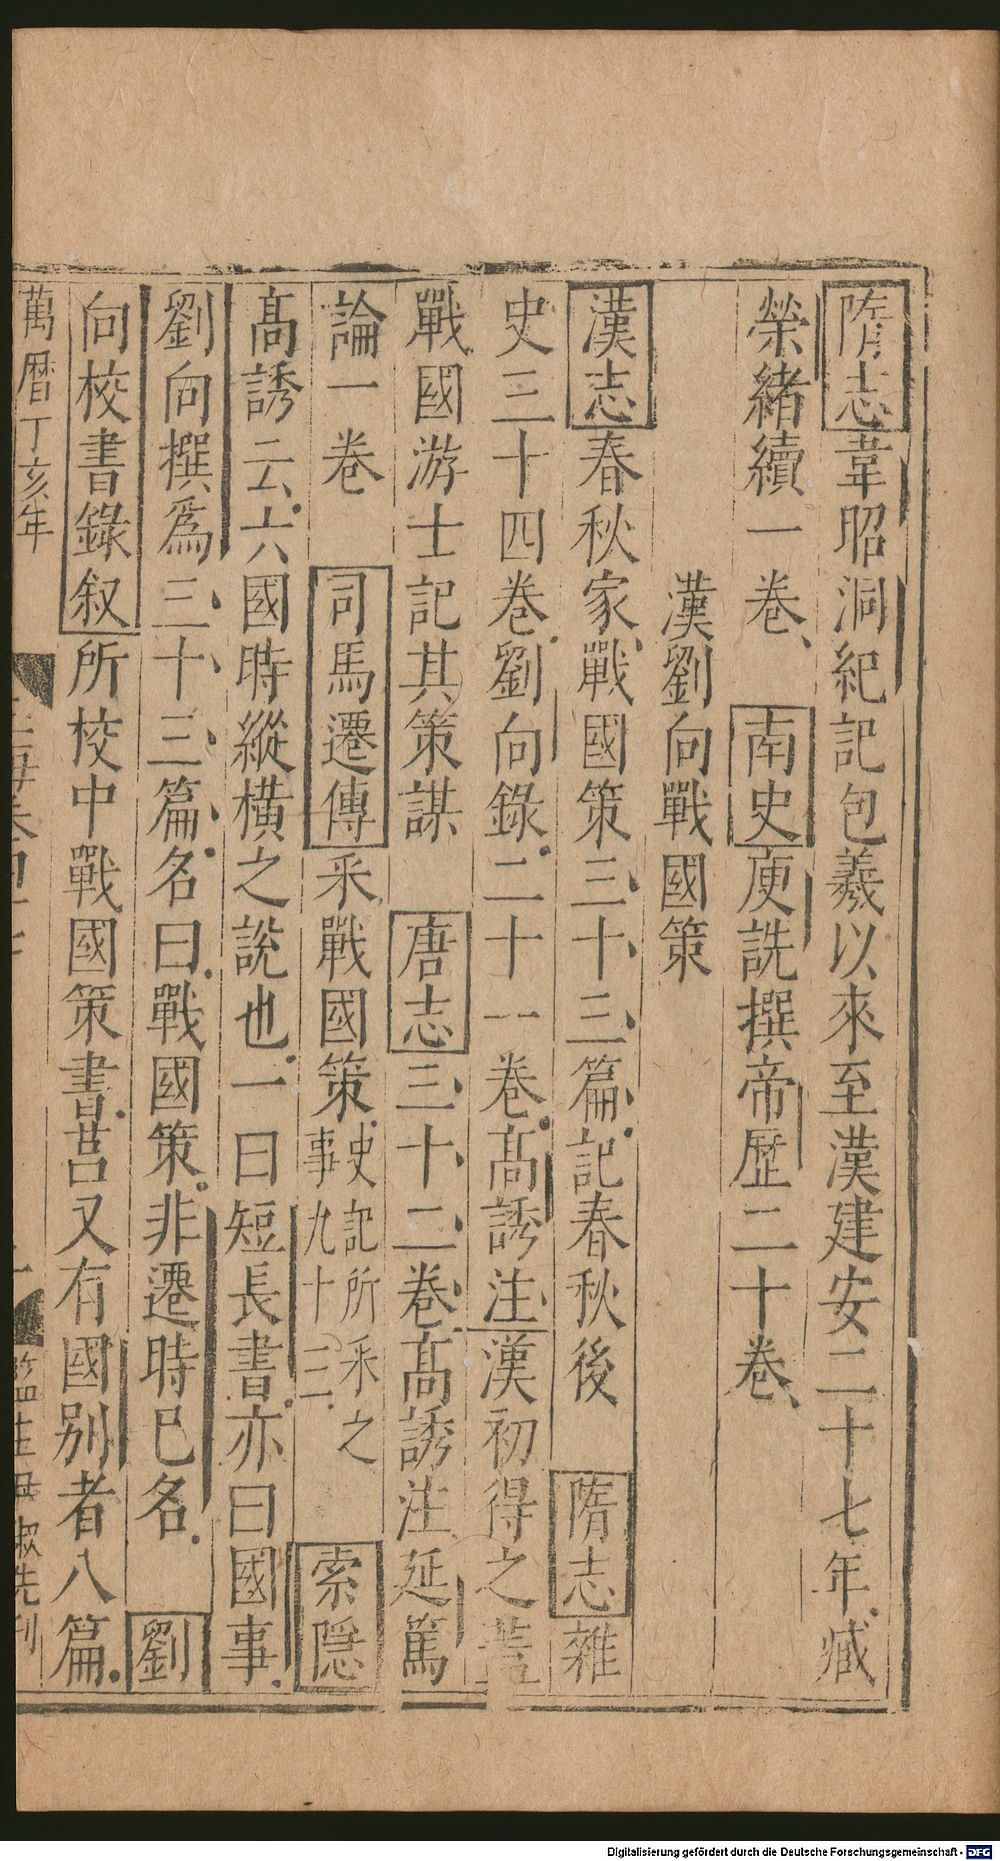 隋志韋昭洞紀記包羲以來至漢建安二十七年臧
榮緒續一卷南史庾詵撰帝歷二十卷
漢劉向戰國策
漢志春秋家戰國策三十三篇記春秋後 隋志雜
史三十四卷劉向錄二十一卷高誘注漢初得之蓋
戰國游士記其策謀 唐志三十二卷高誘注延篤
論一卷 司馬遷傳采戰國策史記所采之事九十三 索隱
高誘云六國時縱橫之說也一曰短長書亦曰國事
劉向撰爲三十三篇名曰戰國策非遷時已名 劉
向校書錄叙所校中戰國策書莒又有國别者八篇
萬曆丁亥年 玉海卷四十七 監生毋淑先刊
Digitalisierung gefördert durch die Deutsche Forschungsgemeinschaft - DFG